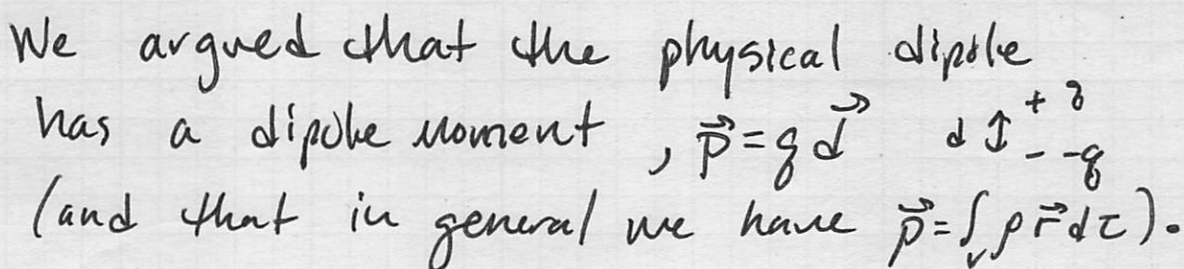 We argued that the physical dipole
has a dipole moment, p⃗ = q d⃗   d ↕ + q - -q
(and that in general we have p⃗ = ∫_V ρ r⃗ dτ).